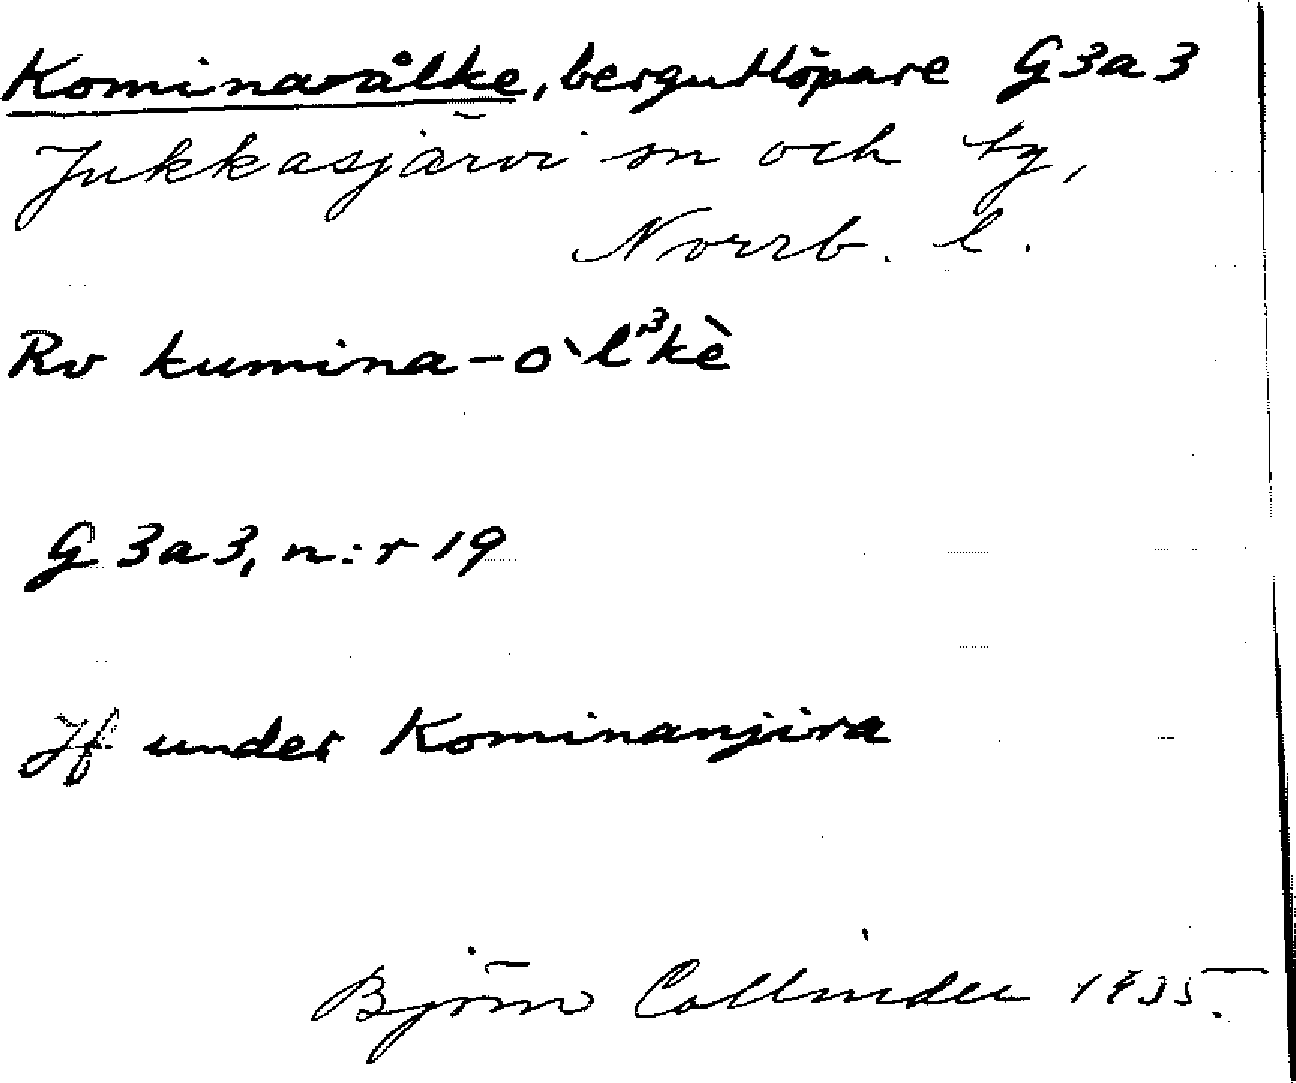 Kominaålke, bergutlöpare G3a3
Jukkasjärvi sn och tg,
Norrb. l.
Rv kumina-o`l³kè
G3a3, n:r 19
Jf under Kominanjira
Björn Collinder 1935.